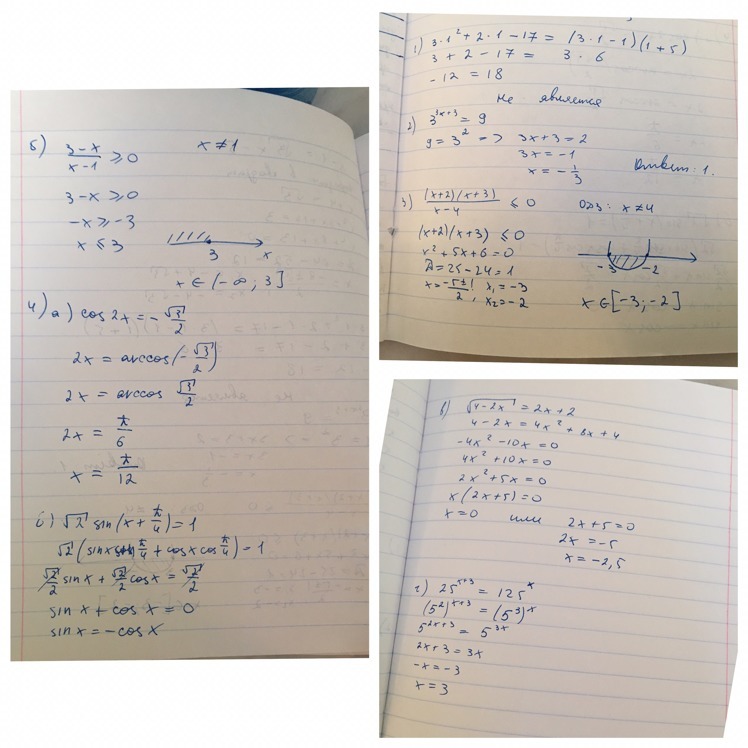 1) 3·1² + 2·1 − 17 = (3·1 − 1)(1 + 5)
3 + 2 − 17 = 3 · 6
−12 = 18
Не является
2) 3^(3x+3) = 9
9 = 3² => 3x + 3 = 2
3x = −1
x = −1/3
Ответ: 1.
3) (x+2)(x+3)/(x−4) ≤ 0 ОДЗ: x ≠ 4
(x+2)(x+3) ≤ 0
x² + 5x + 6 = 0
Д = 25 − 24 = 1
x = (−5±1)/2, x₁ = −3
x₂ = −2
−3 −2
x ∈ [−3; −2]
б) (3−x)/(x−1) ≥ 0 x ≠ 1
3 − x ≥ 0
−x ≥ −3
x ≤ 3
3 x
x ∈ (−∞; 3]
4) а) cos 2x = −√3/2
2x = arccos(−√3/2)
2x = arccos √3/2
2x = π/6
x = π/12
б) √2 sin(x + π/4) = 1
√2 (sin x sin π/4 + cos x cos π/4) = 1
√2/2 sin x + √2/2 cos x = √2/2
sin x + cos x = 0
sin x = −cos x
в) √(4−2x) = 2x + 2
4 − 2x = 4x² + 8x + 4
−4x² − 10x = 0
4x² + 10x = 0
2x² + 5x = 0
x(2x+5) = 0
x = 0 или 2x + 5 = 0
2x = −5
x = −2,5
г) 25^(x+3) = 125^x
(5²)^(x+3) = (5³)^x
5^(2x+3) = 5^(3x)
2x + 3 = 3x
−x = −3
x = 3